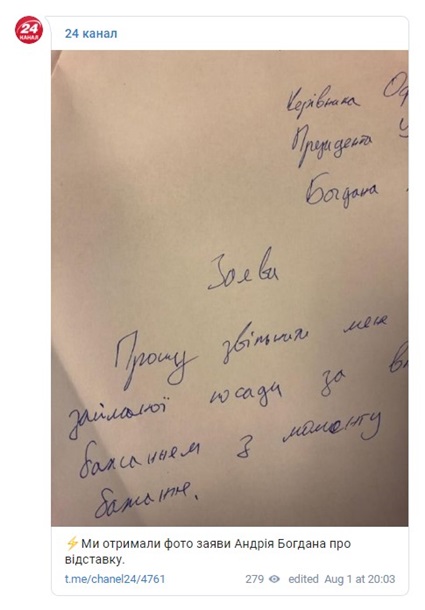 24 КАНАЛ
24 канал
Керівника Оф
Президента У
Богдана
Заява
Прошу звільнити мене
займаної посади за вл
бажанням з моменту
бажання.
⚡Ми отримали фото заяви Андрія Богдана про
відставку.
t.me/chanel24/4761
279 edited Aug 1 at 20:03